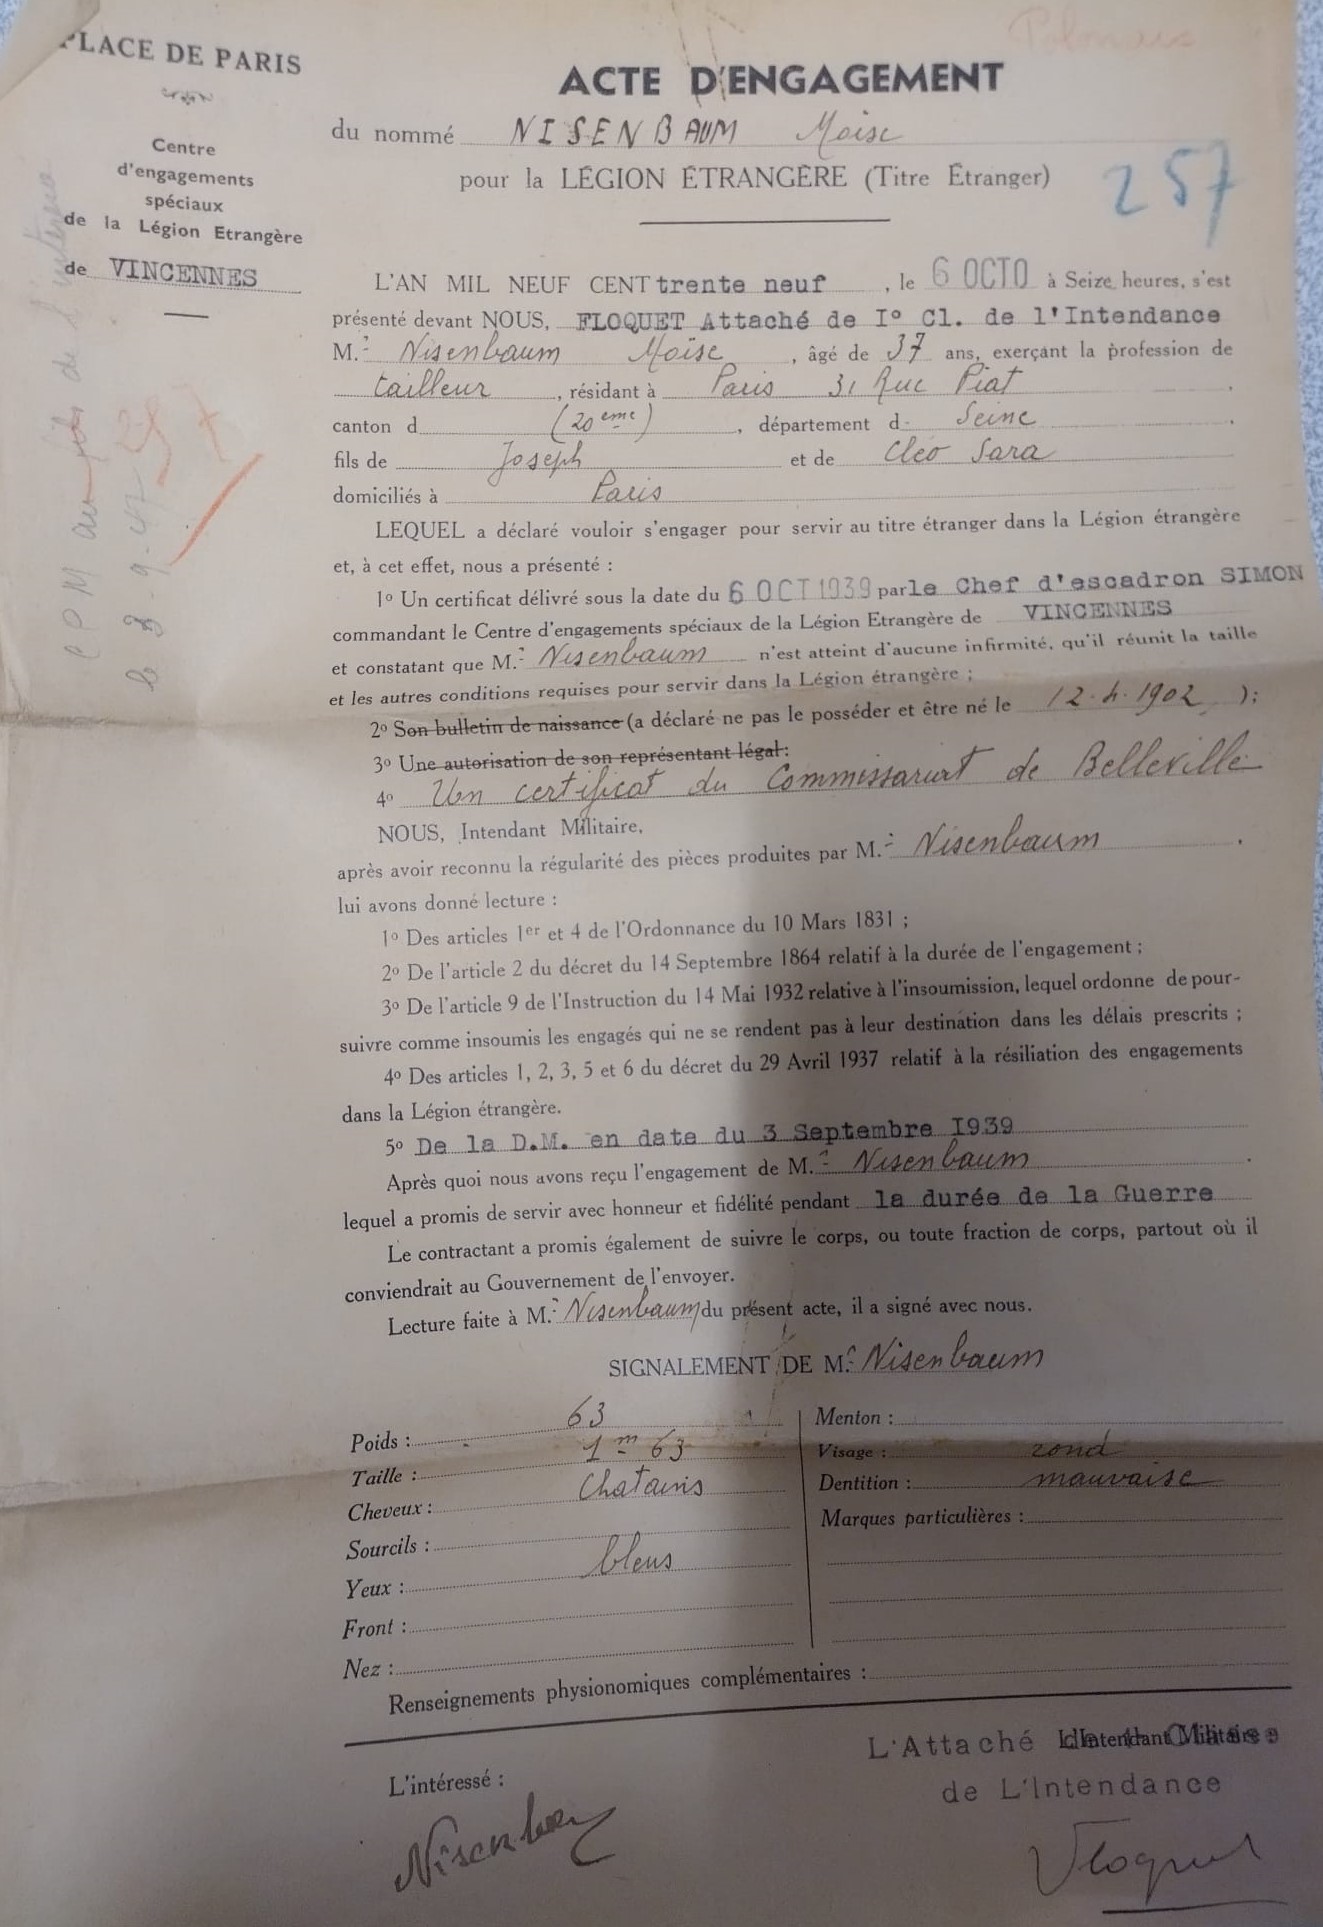 PLACE DE PARIS
Centre
d'engagements
spéciaux
de la Légion Etrangère
de VINCENNES
Polonais
ACTE D'ENGAGEMENT
du nommé NISENBAUM Moïse
pour la LÉGION ÉTRANGÈRE (Titre Étranger)
257
L'AN MIL NEUF CENT trente neuf , le 6 OCTO à Seize heures, s'est
présenté devant NOUS, FLOQUET Attaché de I° Cl. de l'Intendance
M.r Nisenbaum Moïse , âgé de 37 ans, exerçant la profession de
tailleur , résidant à Paris 31 Rue Piat
canton d (20eme) , département d Seine
fils de Joseph et de Cléo Sara
domiciliés à Paris
LEQUEL a déclaré vouloir s'engager pour servir au titre étranger dans la Légion étrangère
et, à cet effet, nous a présenté :
1º Un certificat délivré sous la date du 6 OCT 1939 par le Chef d'escadron SIMON
commandant le Centre d'engagements spéciaux de la Légion Etrangère de VINCENNES
et constatant que M.r Nisenbaum n'est atteint d'aucune infirmité, qu'il réunit la taille
et les autres conditions requises pour servir dans la Légion étrangère ;
2º Son bulletin de naissance (a déclaré ne pas le posséder et être né le 12.4.1902 );
3º Une autorisation de son représentant légal:
4º Un certificat du Commissariat de Belleville
NOUS, Intendant Militaire,
après avoir reconnu la régularité des pièces produites par M.r Nisenbaum .
lui avons donné lecture :
1º Des articles 1er et 4 de l'Ordonnance du 10 Mars 1831 ;
2º De l'article 2 du décret du 14 Septembre 1864 relatif à la durée de l'engagement ;
3º De l'article 9 de l'Instruction du 14 Mai 1932 relative à l'insoumission, lequel ordonne de pour-
suivre comme insoumis les engagés qui ne se rendent pas à leur destination dans les délais prescrits ;
4º Des articles 1, 2, 3, 5 et 6 du décret du 29 Avril 1937 relatif à la résiliation des engagements
dans la Légion étrangère.
5º De la D.M. en date du 3 Septembre I939
Après quoi nous avons reçu l'engagement de M.r Nisenbaum .
lequel a promis de servir avec honneur et fidélité pendant la durée de la Guerre
Le contractant a promis également de suivre le corps, ou toute fraction de corps, partout où il
conviendrait au Gouvernement de l'envoyer.
Lecture faite à M.r Nisenbaum du présent acte, il a signé avec nous.
SIGNALEMENT DE M.r Nisenbaum
Poids : 63
Taille : 1m 63
Cheveux : Chatains
Sourcils :
Yeux : bleus
Front :
Nez :
Menton :
Visage : rond
Dentition : mauvaise
Marques particulières :
Renseignements physionomiques complémentaires :
L'intéressé :
Nisenbaum
L'Attaché de 1° Classe
L'Intendant Militaire
de L'Intendance
Floquet
257
le 3-9-47